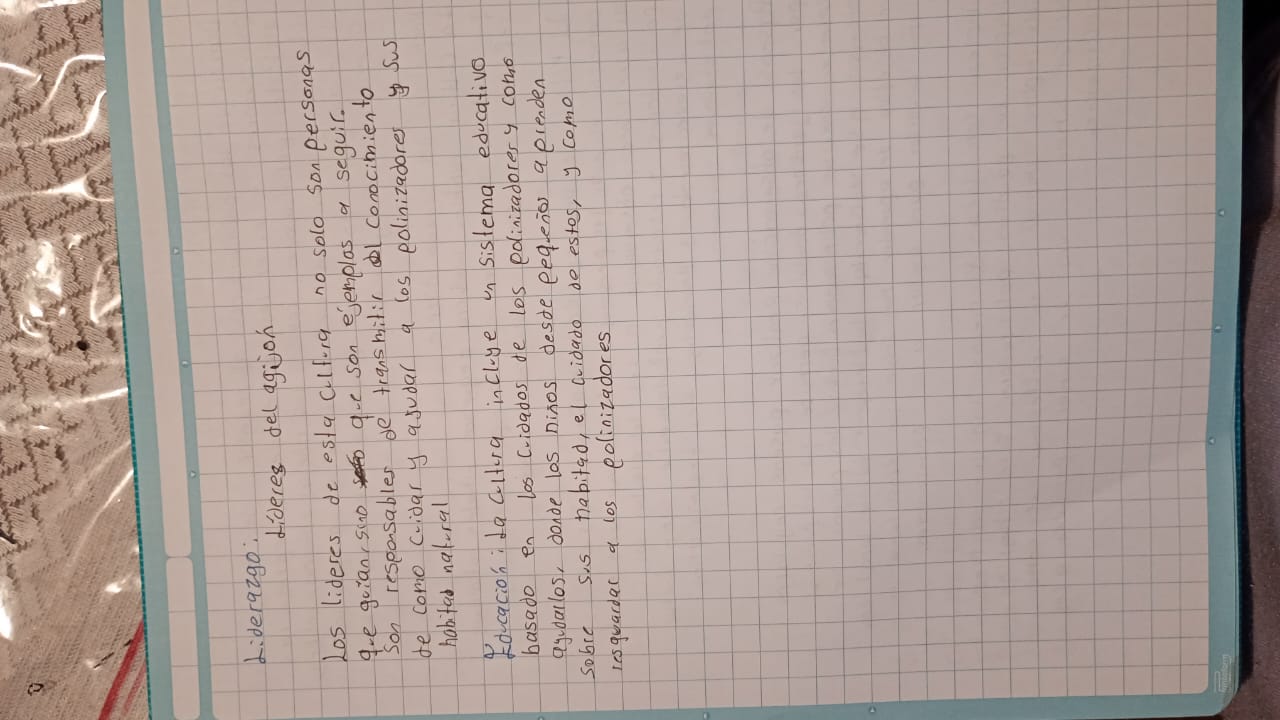 Liderazgo:
Líderes del agijón
Los lideres de esta cultura no solo son personas
que guian, sino que son ejemplos a seguir.
Son responsables de transmitir el conocimiento
de como cuidar y ayudar a los polinizadores y sus
habitad natural
Educación: La cultura incluye un sistema educativo
basado en los cuidados de los polinizadores y como
ayudarlos, donde los niños desde pequeños aprenden
sobre sus habitad, el cuidado de estos, y como
resguardar a los polinizadores